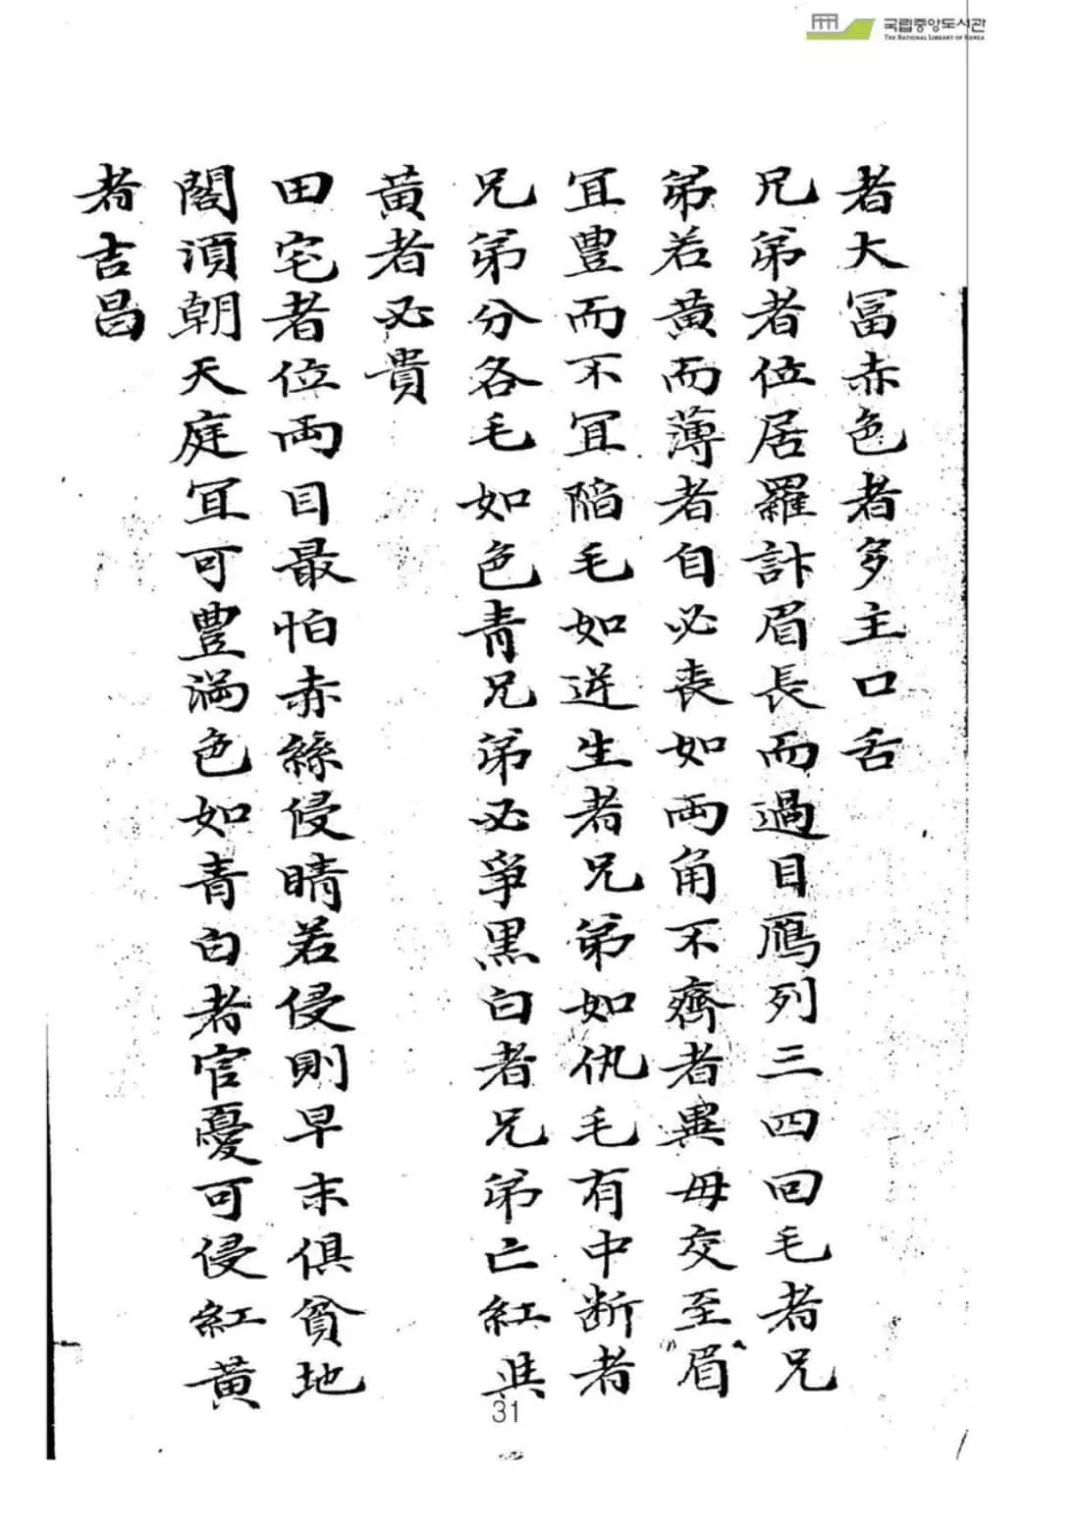 국립중앙도서관
THE NATIONAL LIBRARY OF KOREA
者大冨赤色者多主口舌
兄弟者位居羅計眉長而過目鴈列三四回毛者兄
弟若黄而薄者自必喪如兩角不齊者異母交至眉
冝豊而不冝陷毛如逆生者兄弟如仇毛有中断者
兄弟分各毛如色青兄弟必爭黒白者兄弟亡紅
黄者必貴
田宅者位両目最怕赤絲侵睛若侵則早末俱貧地
閣須朝天庭冝可豊満色如青白者官憂可侵紅黄
者吉昌
31